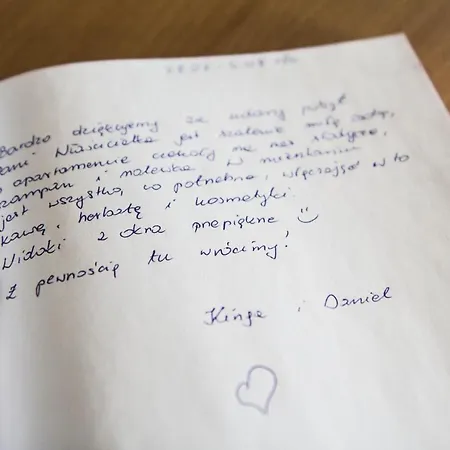 Bardzo dziękujemy za udany pobyt
Pani Właścicielka jest szalenie miłą osobą,
w apartamencie czekały na nas słodycze,
szampan i nalewka. W mieszkaniu
jest wszystko, co potrzebne, włączając w to
kawę, herbatę i kosmetyki.
Widoki z okna przepiękne
Z pewnością tu wrócimy!
Kinga i Daniel